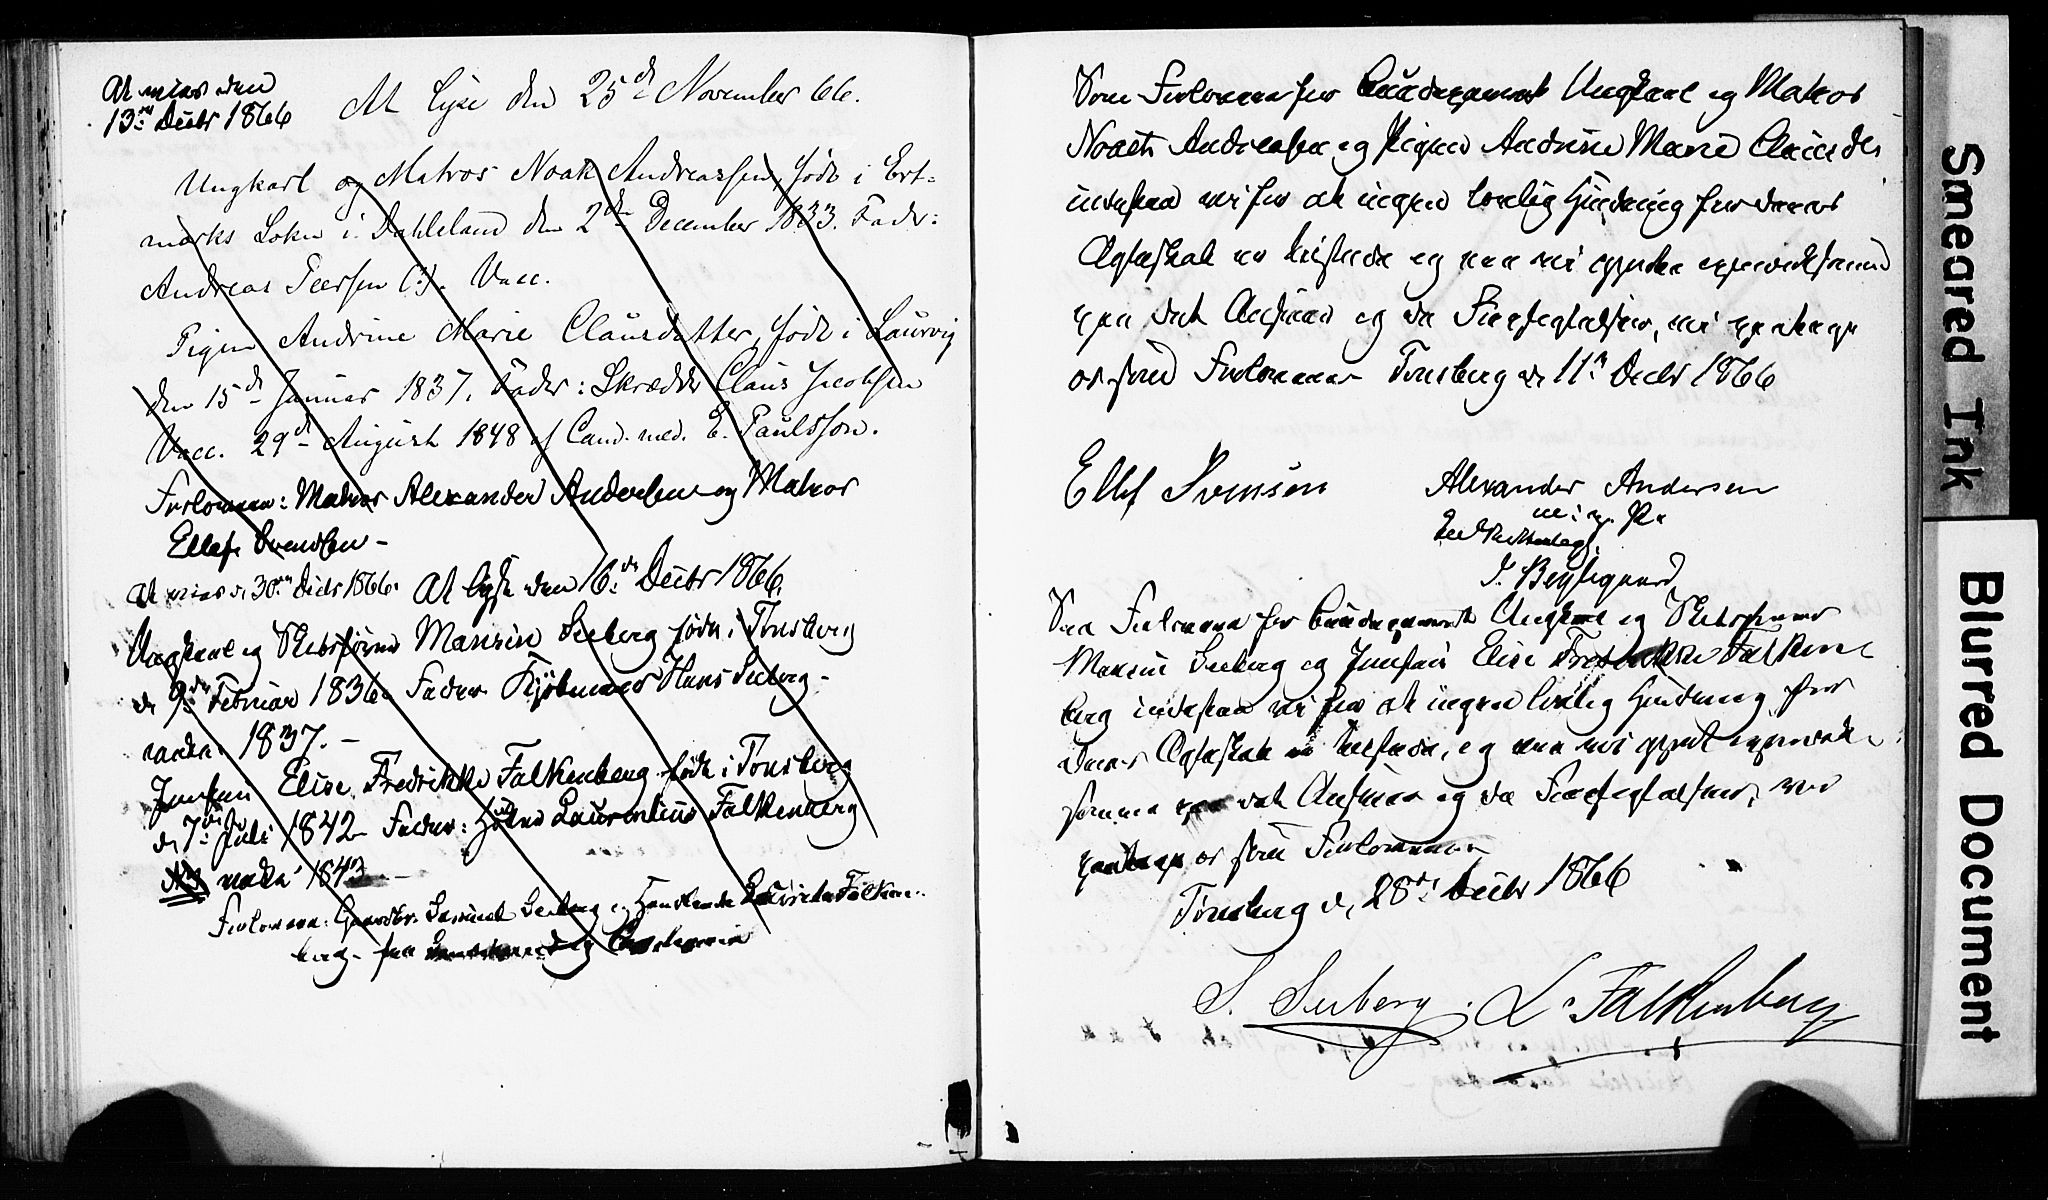 At vies den
13de Decbr 1866
At lyse den 25de November 66.
Ungkarl og Matros Noak Andreassen, født i Ert-
marks Sokn i Dahleland den 2de December 1833. Fader:
Andreas Peersen (:). Vacc.
Pigen Andrine Marie Clausdatter, født i Laurvig
den 15de Januar 1837. Fader: Skrædder Claus Jacobsen
Vacc. 29de August 1848 af Cand. med. E. Paulsson.
Forlovere: Matros Alexander Andersen og Matros
Ellef Svendsen -
At vies d. 30te Decbr 1866. At lyse den 16de Decbr 1866.
Ungkarl og Skibsfører Mansin Seeberg født i Tønsberg
d. 9de Februar 1836 Fader Kjøbmand Hans Seeberg -
vacc. 1837. -
Jomfru Elise Fredrikke Falkenberg født i Tønsberg
d. 7de Juli 1842 Fader: Laurentius Falkenberg
vacc. 1843
Forlovere: Samuel Seeberg og Falken-
berg -
Som Forlovere for Ungkarl og Matros
Noach Andreasen og Pigen Andrine Marie Clausdtr
indestaa vi for at ingen lovlig Hindring for deres
Ægteskab er tilstede og
paa det Ansvar og de Forpligtelser, vi paatage
os som Forlovere Tønsberg d. 11te Decbr 1866
Ellef Svensen
Alexander Andersen
m. p. P.
J. Bryhgaard
Som Forlovere for Ungkarl og Skibsfører
Mansin Seeberg og Jomfru Elise Fredrikke Falken-
berg indestaa vi for at ingen lovlig Hindring for
deres Ægteskab er tilstede, og
det Ansvar og de Forpligtelser, vi
paatage os som Forlovere
Tønsberg d. 28de Decbr 1866
S. Seeberg. L. Falkenberg
Smeared Ink
Blurred Document